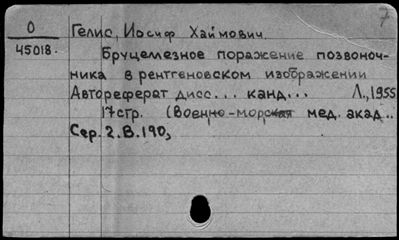 7
О
45018.
Гелис, Иосиф Хаимович.
Бруцеллезное поражение позвоноч-
ника в рентгеновском изображении
Автореферат дисс... канд... Л., 1955
17стр. (Военно-морская мед. акад..
Сер. 2.В.190,